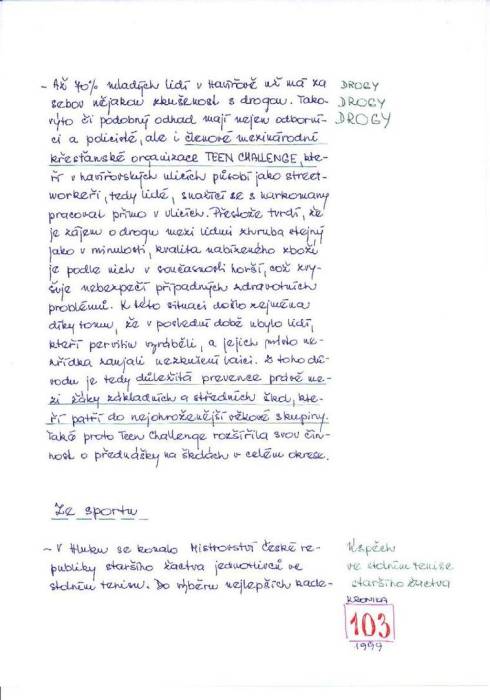 ~ Až 70% mladých lidí v Havířově už má za
sebou nějakou zkušenost s drogou. Tako-
výto či podobný odhad mají nejen odborní-
ci a policisté, ale i členové mezinárodní
křesťanské organizace TEEN CHALLENGE, kte-
ří v havířovských ulicích působí jako street-
workeři, tedy lidé, snažící se s narkomany
pracovat přímo v ulicích. Přestože tvrdí, že
je zájem o drogu mezi lidmi zhruba stejný
jako v minulosti, kvalita nabízeného zboží
je podle nich v současnosti horší, což zvy-
šuje nebezpečí případných zdravotních
problémů. K této situaci došlo zejména
díky tomu, že v poslední době ubylo lidí,
kteří pervitin vyráběli, a jejich místo ne-
zřídka zaujali nezkušení laici. Z toho dů-
vodu je tedy důležitá prevence právě me-
zi žáky základních a středních škol, kte-
ří patří do nejohroženější věkové skupiny.
Také proto Teen Challenge rozšířila svou čin-
nost o přednášky na školách v celém okrese.
DROGY
DROGY
DROGY
Ze sportu
~ V Hluku se konalo Mistrovství České re-
publiky staršího žactva jednotlivců ve
stolním tenisu. Do výběru nejlepších kade-
Úspěch
ve stolním tenise
staršího žactva
KRONIKA
103
1999